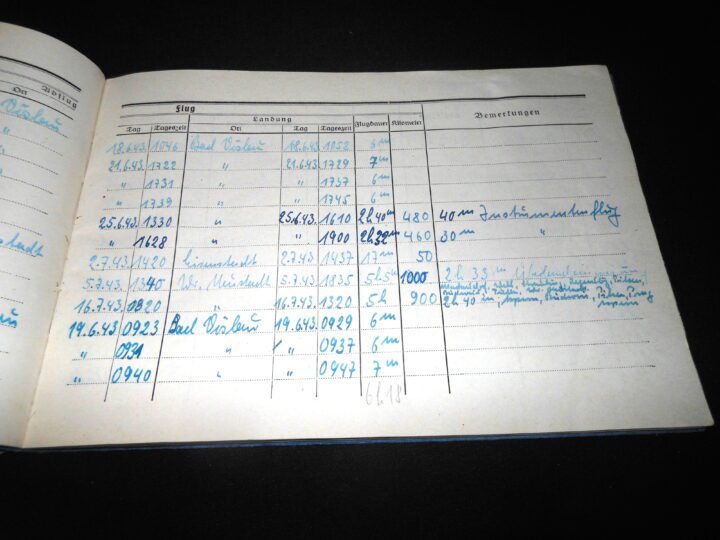 Abflug
Ort
Vöslau
"
"
Flug
Landung
Tag Tageszeit Ort Tag Tageszeit Flugdauer Kilometer Bemerkungen
18.6.43. 1046 Bad Vöslau 18.6.43. 1052 6 m
21.6.43. 1722 " 21.6.43. 1729 7 m
" 1731 " " 1737 6 m
" 1739 " " 1745 6 m
25.6.43. 1330 " 25.6.43. 1610 2h 40m 480 40 m Instrumentenflug
" 1628 " " 1900 2h 32m 460 30 m "
2.7.43. 1420 Eisenstadt 2.7.43. 1437 17 m 50
5.7.43. 1340 Wr. Neustadt 5.7.43. 1835 5h 1000 2 h 33 m
16.7.43. 0820 " 16.7.43. 1320 5h 900 2 h 40 m
19.6.43 0923 Bad Vöslau 19.6.43. 0929 6 m
" 0931 " " 0937 6 m
" 0940 " " 0947 7 m
6h18